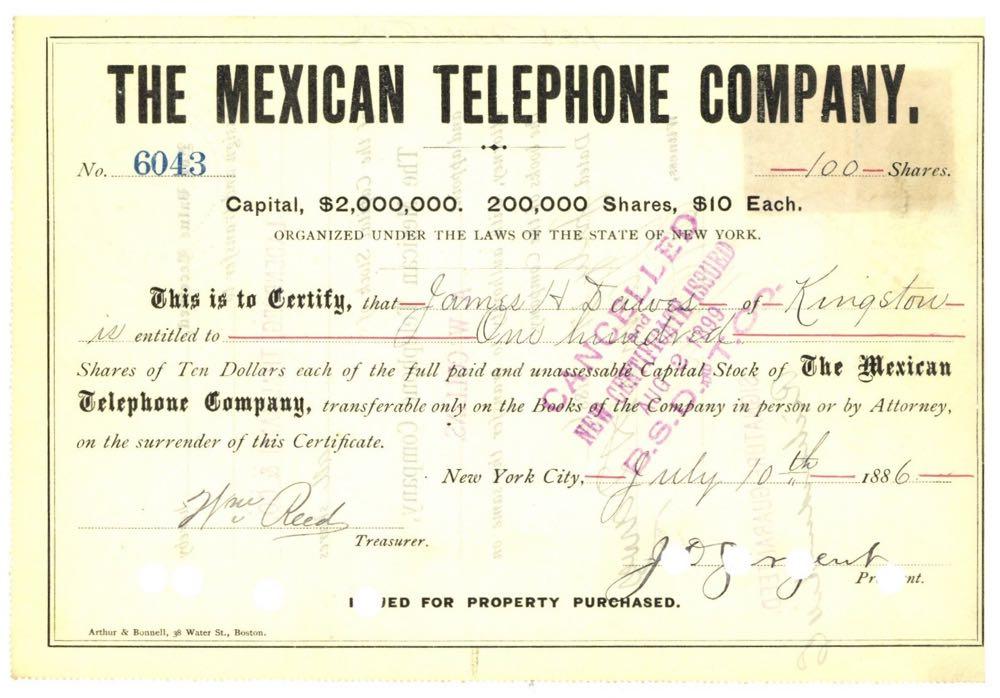 THE MEXICAN TELEPHONE COMPANY.
No. 6043 100 Shares.
Capital, $2,000,000. 200,000 Shares, $10 Each.
ORGANIZED UNDER THE LAWS OF THE STATE OF NEW YORK.
This is to Certify, that James H Dawes of Kingston
is entitled to One hundred
Shares of Ten Dollars each of the full paid and unassessable Capital Stock of The Mexican
Telephone Company, transferable only on the Books of the Company in person or by Attorney,
on the surrender of this Certificate.
CANCELLED
and
NEW CERTIFICATE ISSUED
AUG 2 1899
B.S.D. T.C.
New York City, July 10th 1886
Wm Reed
Treasurer.
ED FOR PROPERTY PURCHASED.
Arthur & Bonnell, 38 Water St., Boston.